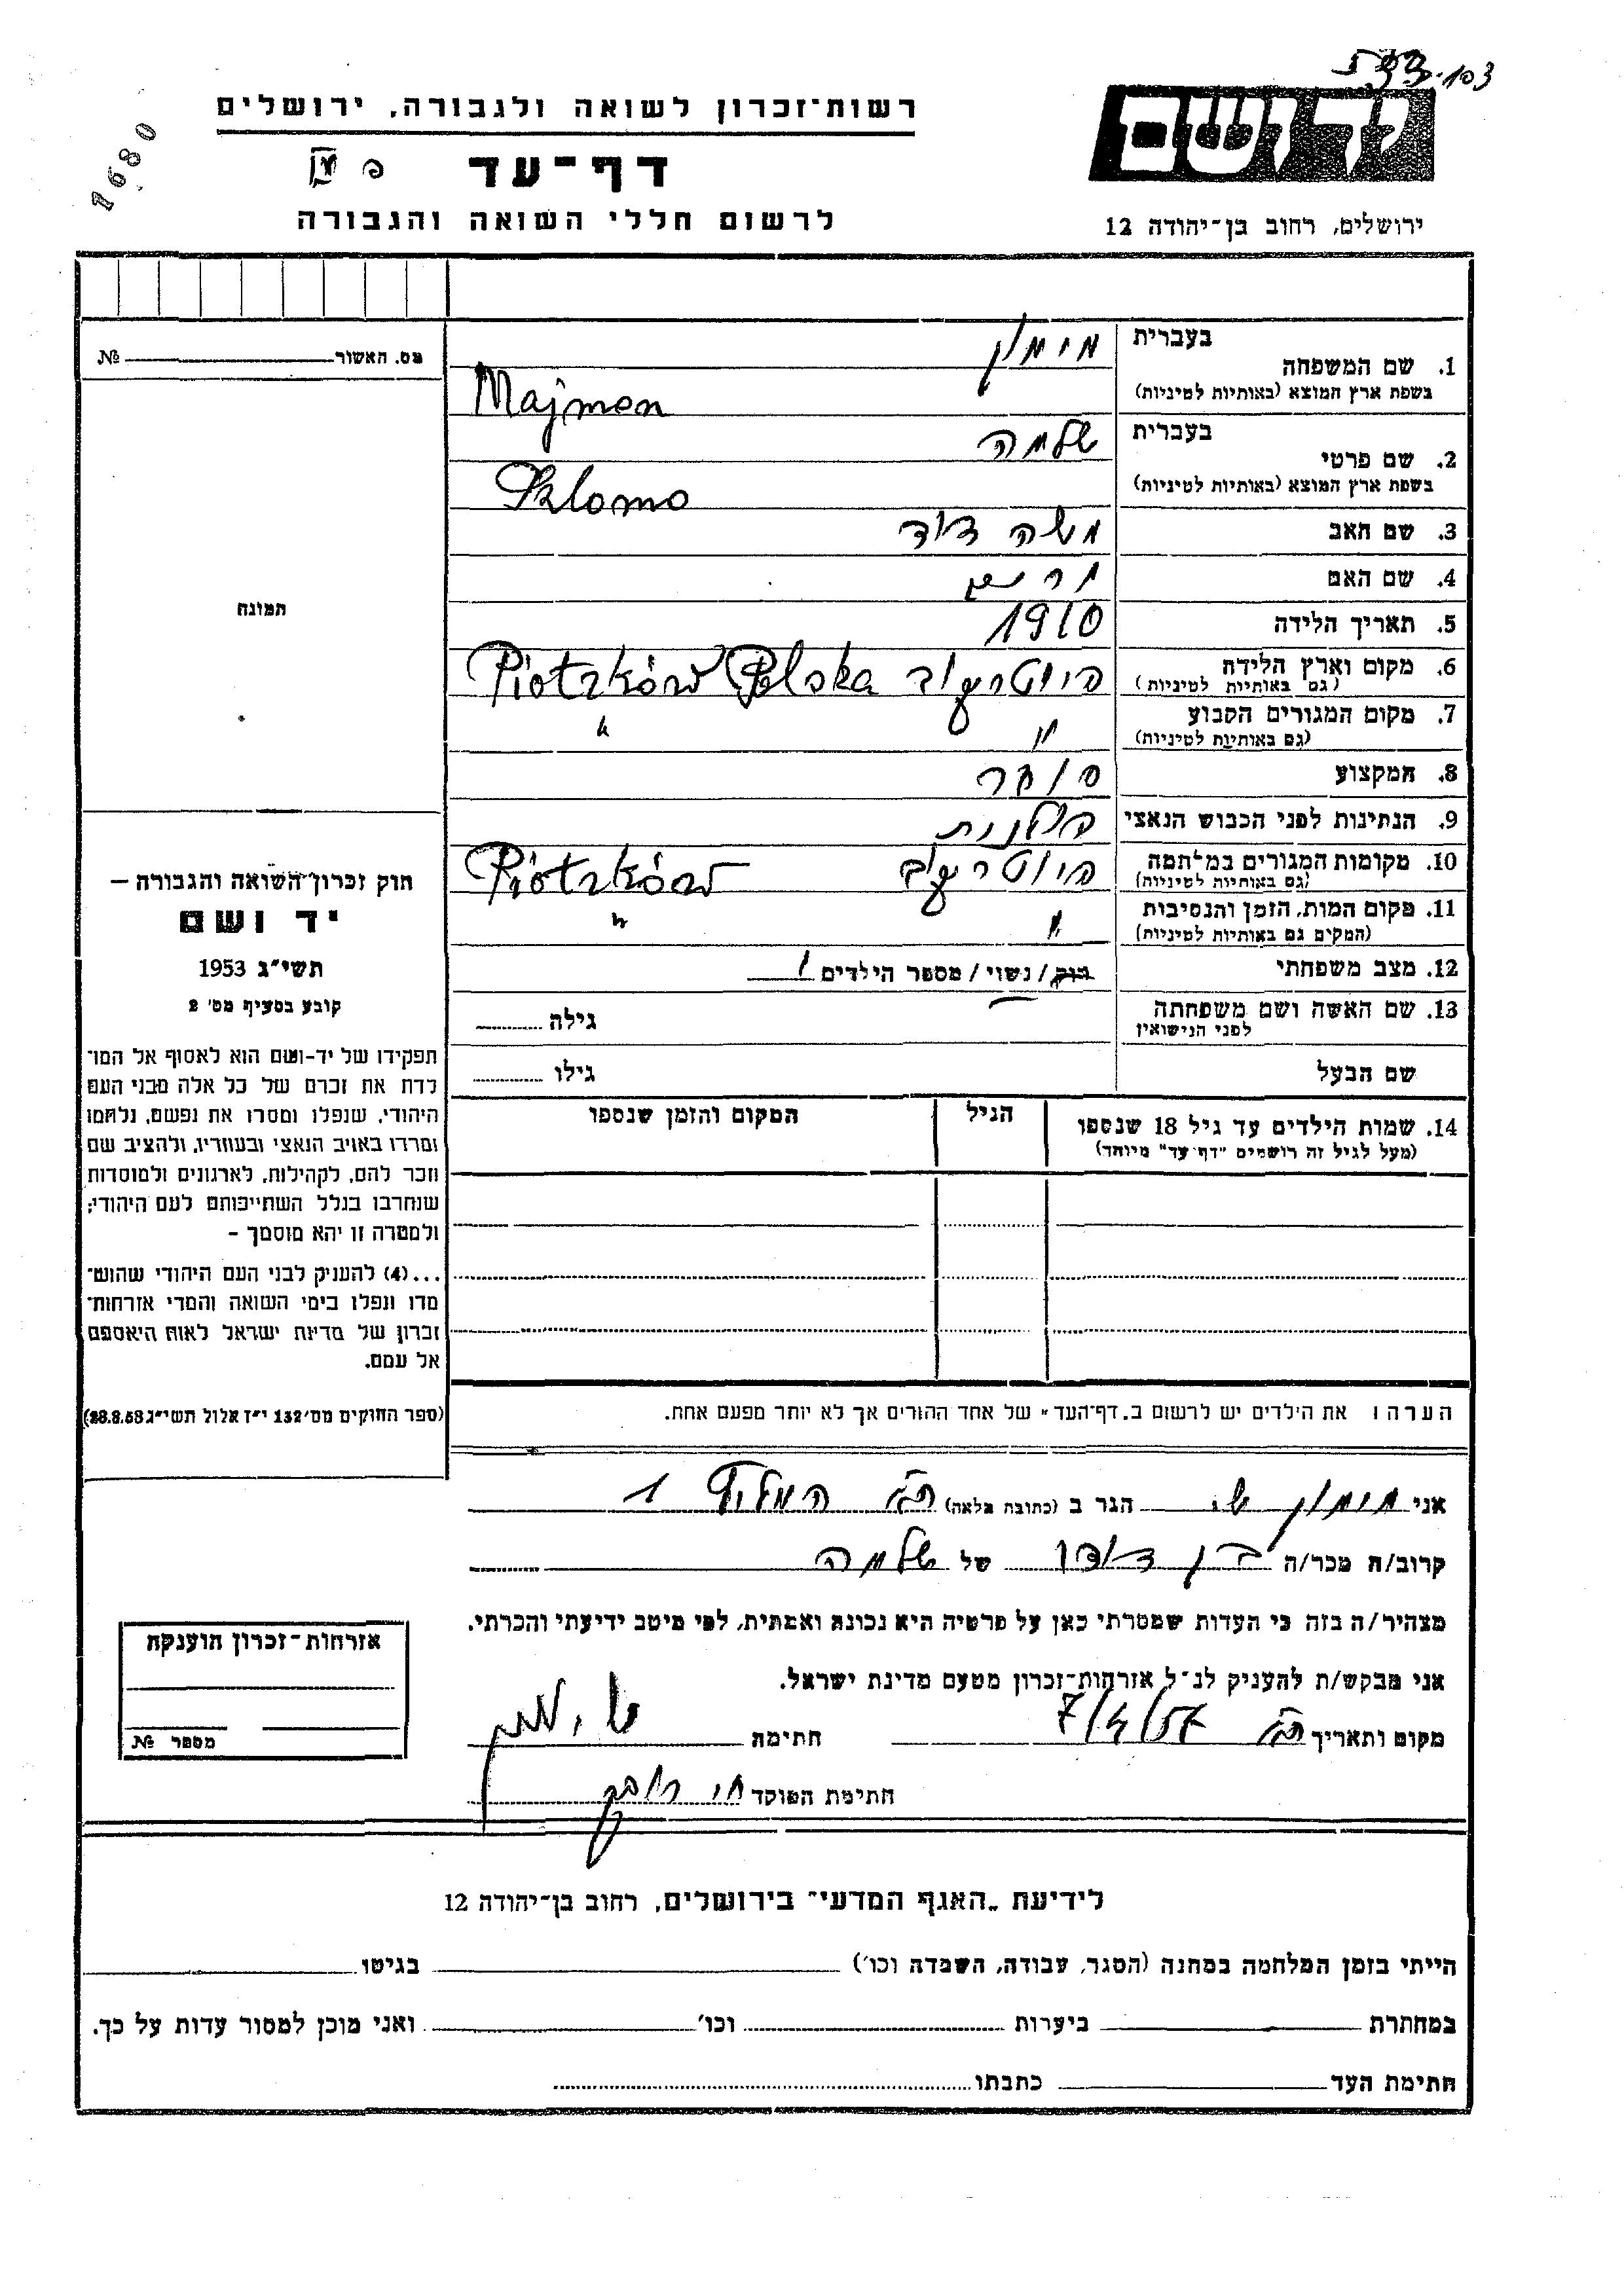 1680
רשות־זכרון לשואה ולגבורה, ירושלים
דף־עד
לרשום חללי השואה והגבורה
יד ושם
ירושלים, רחוב בן־יהודה 12
מס. האשור № 
תמונה
חוק זכרון־השואה והגבורה —
יד ושם
תשי״ג 1953
קובע בסעיף מס׳ 2
תפקידו של יד-ושם הוא לאסוף אל המו־
לדת את זכרם של כל אלה מבני העם
היהודי, שנפלו ומסרו את נפשם, נלחמו
ומרדו באויב הנאצי ובעוזריו, ולהציב שם
וזכר להם, לקהילות, לארגונים ולמוסדות
שנחרבו בגלל השתייכותם לעם היהודי;
ולמטרה זו יהא מוסמך –
...(4) להעניק לבני העם היהודי שהוש־
מדו ונפלו בימי השואה והמרי אזרחות־
זכרון של מדינת ישראל לאות היאספם
אל עמם.
(ספר החוקים מס׳ 132 י״ז אלול תשי״ג 28.8.53)
1. שם המשפחה
בעברית מימון
בשפת ארץ המוצא (באותיות לטיניות) Majmon
2. שם פרטי
בעברית שלמה
בשפת ארץ המוצא (באותיות לטיניות) Szlomo
3. שם האב משה דוד
4. שם האם
5. תאריך הלידה 1910
6. מקום וארץ הלידה פיוטרקוב Piotrków Polska
(גם באותיות לטיניות)
7. מקום המגורים הקבוע " "
(גם באותיות לטיניות)
8. המקצוע סוחר
9. הנתינות לפני הכבוש הנאצי פולנית
10. מקומות המגורים במלחמה פיוטרקוב Piotrków
(גם באותיות לטיניות)
11. מקום המות, הזמן והנסיבות " "
(המקום גם באותיות לטיניות)
12. מצב משפחתי רוק/ נשוי/ מספר הילדים 1
13. שם האשה ושם משפחתה
לפני הנישואין
גילה
שם הבעל גילו
14. שמות הילדים עד גיל 18 שנספו
(מעל לגיל זה רושמים "דף־עד" מיוחד)
הגיל
המקום והזמן שנספו
הערה: את הילדים יש לרשום ב„דף־העד" של אחד ההורים אך לא יותר מפעם אחת.
אני מימון ש. הגר ב (כתובת מלאה) 1
קרוב/ה מכר/ה בן דודן של שלמה
מצהיר/ה בזה כי העדות שמסרתי כאן על פרטיה היא נכונה ואמתית, לפי מיטב ידיעתי והכרתי.
אני מבקש/ת להעניק לנ״ל אזרחות־זכרון מטעם מדינת ישראל.
מקום ותאריך 7/4/57 חתימה ש. מימון
חתימת הפוקד
אזרחות־זכרון הוענקה
מספר №
לידיעת „האגף המדעי" בירושלים, רחוב בן־יהודה 12
הייתי בזמן המלחמה במחנה (הסגר, עבודה, השמדה וכו׳) בגיטו
במחתרת ביערות וכו׳ ואני מוכן למסור עדות על כך.
חתימת העד כתבתו